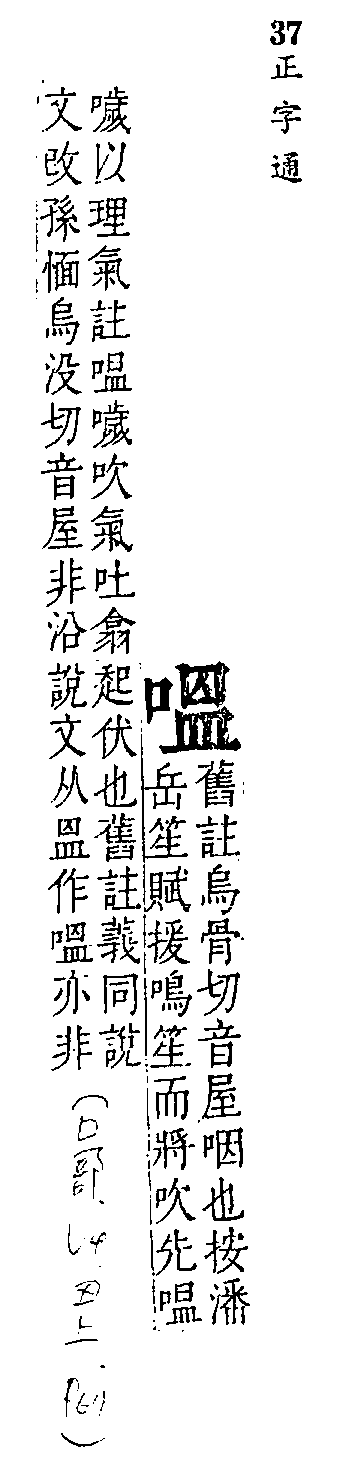 37 正字通
嗢
舊註烏骨切音屋咽也按潘
岳笙賦援鳴笙而將吹先嗢
噦以理氣註嗢噦吹氣吐翕起伏也舊註義同說
文改孫愐烏没切音屋非沿說文从𥁕作嗢亦非
(口部